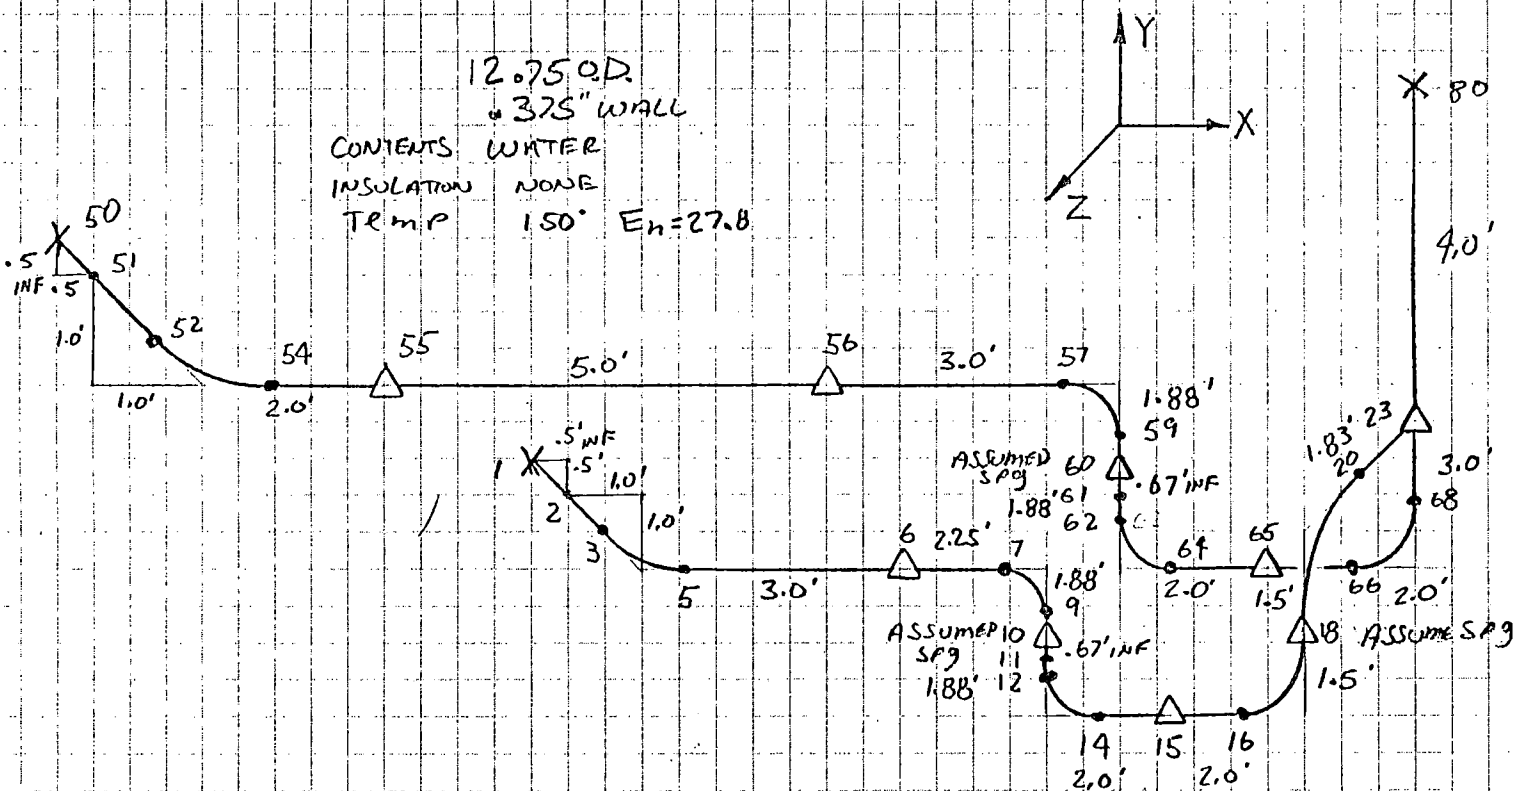 12.750.D.
.375" WALL
CONTENTS WATER
INSULATION NONE
Temp 150° Eh=27.8
Y
X
Z
80
4.0'
50
.5
INF .5
51
1.0'
52
1.0'
54
2.0'
55
5.0'
56
3.0'
57
1.88'
59
ASSUMED
SPg
60
.67'INF
1.88'
61
62
64
2.0'
65
1.5'
66
2.0'
68
3.0'
23
1.83'
20
1
.5'INF
.5'
2
1.0'
1.0'
3
5
3.0'
6
2.25'
7
1.88'
9
ASSUMED
SPg
10
.67'INF
11
1.88'
12
14
2.0'
15
16
2.0'
18
ASSUME SPg
1.5'